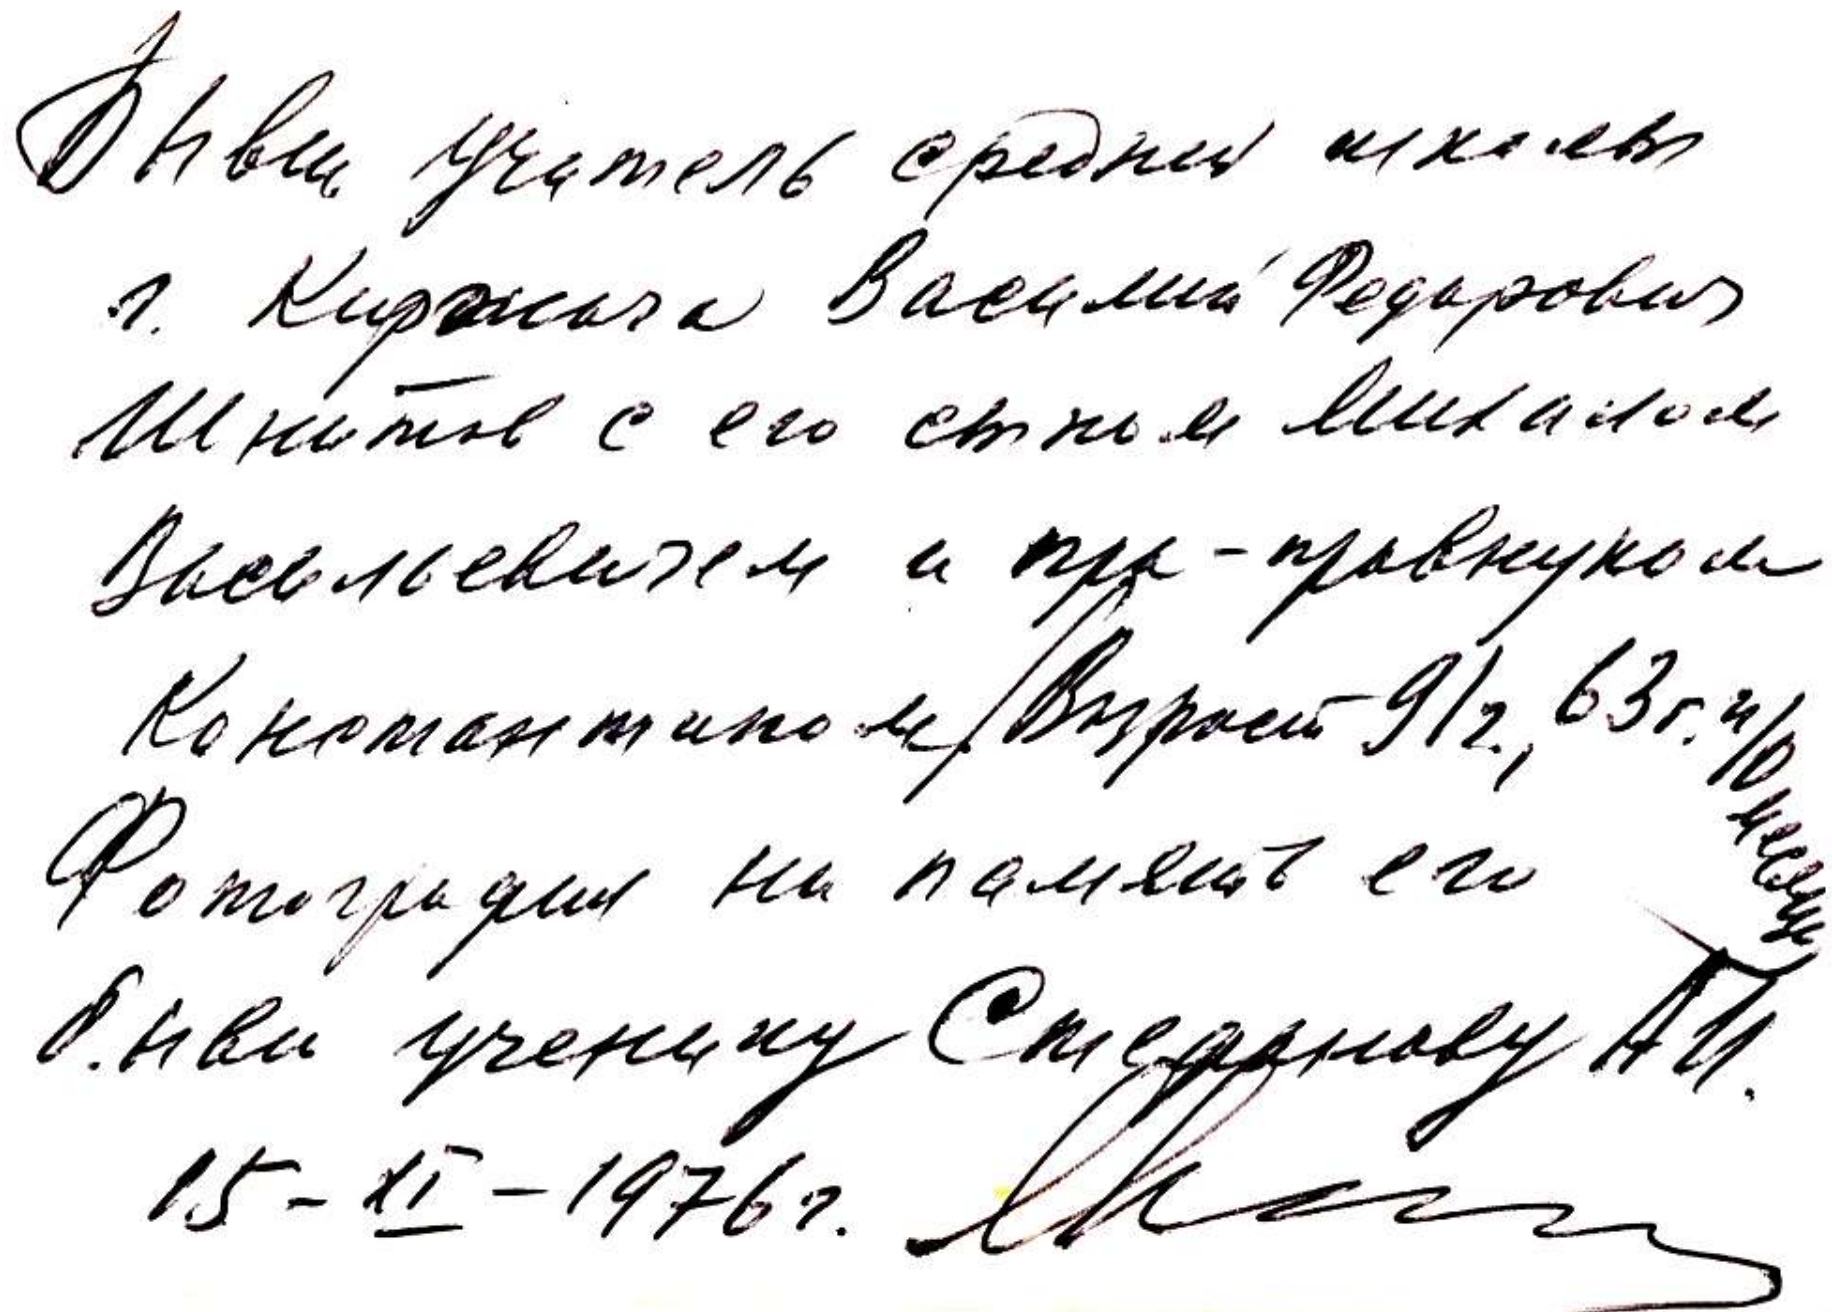 Бывш учитель средней школы
г. Киржача Василий Федорович
Шнитов с его сыном Михаилом
Васильевичем и пра-правнуком
Константином /Возраст 91г., 63г. и 10 месяце
Фотография на память его
бывш ученику Стефанову АП.
15-XI-1976г.